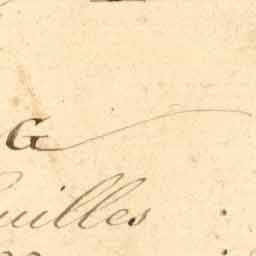 G
uilles .